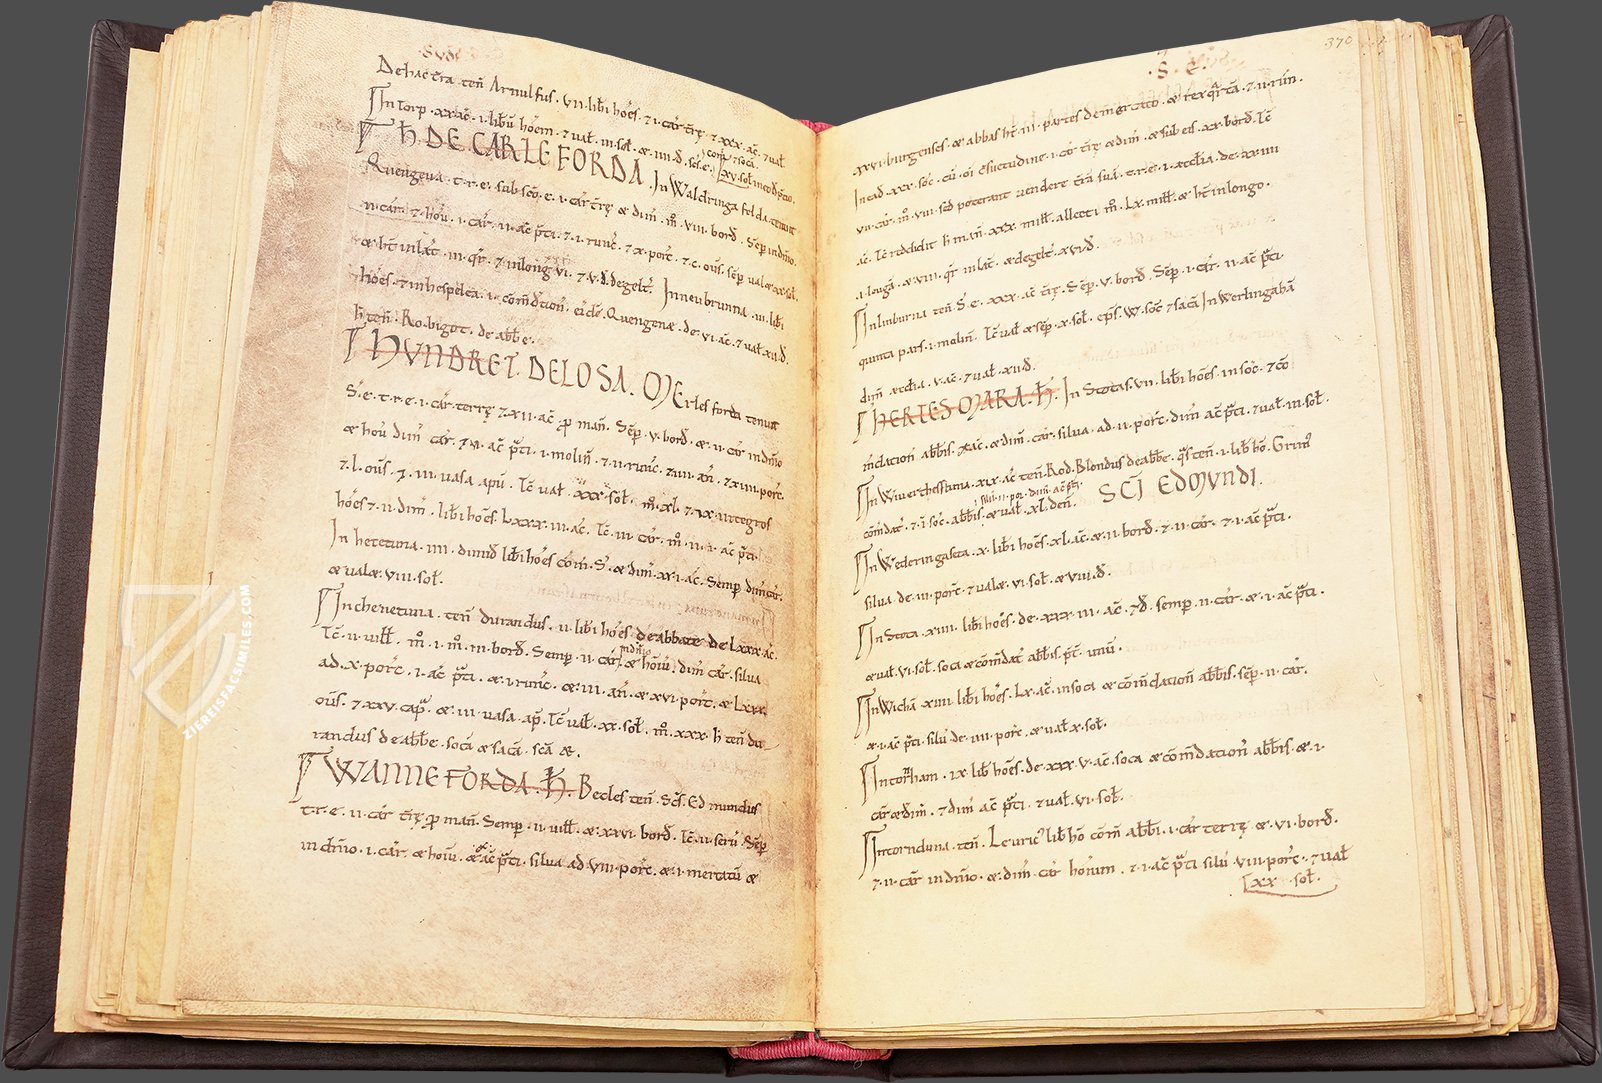 De hac t̃ra . teñ Arnulfus . vii . lib̃i hões . 7 . i . cár t̃rę . 7 . xxx . ac̃ . 7 uał
In torp . xx ac̃ . i . lib̃ũ hõem . 7 uał . iii . soł . æ iiii . d̃ .
H̃ DE CARLE FORDA . In Waldringa felda tenuit
Quengeua . t . r . e . sub . e . i . cár t̃rę æ dim̃ . m̊ . viii . bord̃ . Semp̃ in dnio .
ii . cár . 7 hou . i . cár . ii . ac̃ p̃ti . 7 . i . runc̃ . 7 x . porc̃ . 7 c . ous̃ . semp̃ ual
æ ht̃ in lat̃ . iii . qr̃ . 7 in long̃ vi . 7 . v . d̃ . de gelt̃ . In neubrunna . iii . lib̃i
hões . 7 in hespelea . i . com̃dation̄ . Quengeuæ . de . vi . ac̃ . 7 uał . xii . d̃ .
h̃ teñ . Ro . bigot . de abb̃e .
HVNDRET . DE LOSA . Merlesforda tenuit
S . e . t . r . e . i . cár terrę 7 xii . ac̃ . p man̄ . Semp̃ . v . bord̃ . æ . ii . cár in dnio
æ hou dim̃ cár . ac̃ p̃ti . i . molin̄ . 7 . ii . runc̃ . 7 iiii . an̄ . 7 xiiii . porc̃ .
7 . l . ous̃ . 7 . iii . uasa apũ . Tc̃ uał . xxx . soł . m̊ . xl . integros
hões 7 . ii . dim̃ . lib̃i hões . Lxxx . iii . ac̃ . Tc̃ . iii . cár . m̊ . ii . i . ac̃ p̃ti .
In hetetuna . iiii . dimid̃ lib̃i hões com̃ . S . æ dim̃ . xx . i . ac̃ . Semp̃ dim̃ cár .
æ ual æ . viii . soł .
In chenetuna . teñ durandus . ii . lib̃i hões de abbate de Lxxx . ac̃ .
Tc̃ . ii . uiłł . m̊ . i . m̊ . iii . bord̃ . Semp̃ . ii . cár in dnio æ hoiũ . dim̃ cár . silua
ad . x . porc̃ . i . ac̃ p̃ti . æ . i runc̃ . æ . iii . an̄ . æ xvi . porc̃ . æ Lxxx .
ous̃ . 7 xxv . cap̃ . æ . iii . uasa . ap̃ . Tc̃ uał . xx . soł . m̊ . xxx . h̃ teñ du
randus de abb̃e . soca æ saca . scã æ .
WANNEFORDA . H̃ . Becles teñ . Sc̃s . Edmundus
t . r . e . ii . cár t̃rę p man̄ . Semp̃ . vii . uiłł . æ . xxvi . bord̃ . Tc̃ . ii . seru . Semp̃
in dnio . i . cár . æ hoiũ . ac̃ p̃ti . silua ad . viii . porc̃ . æ . i . mercatũ æ
370
. S .
xxvi . burgenses . æ abbas ht̃ . iii . partes de mercato . æ rex q̃rtã . 7 . ii . run .
In ead̃ . xxx . soc̃ . cũ . oi c̃suetudine . i . cár t̃rę æ dim̃ . æ sub eis . xx . bord̃ . Tc̃
vii . cár . m̊ . viii . sed poterant uendere t̃rã suã . t . r . e . i . æcclia . de . xx iiii
ac̃ . Tc̃ reddidit h̃ man̄ . xxx . miłł . allecti m̊ . Lx . miłł . æ ht̃ in longo .
. i . lougã . æ viii . qr̃ in lat̃ . æ de gelt̃ . xvi . d̃ .
In linburna teñ S . e . xxx . ac̃ t̃rę . Semp̃ . v . bord̃ . Semp̃ . i . cár . ii . ac̃ p̃ti .
quinta pars . i . molin̄ . Tc̃ uał æ semp̃ . x . soł . ep̃s . w . soc̃ 7 sacã In Werlingahã
dim̃ æcclia . v . ac̃ . 7 uał . xii . d̃ .
HERTESMARA . H̃ . In Stotas . vii . lib̃i hões in soc̃ . 7 cõ
m̃dation̄ abb̃is . ac̃ . æ dim̃ . cár . silua . ad . ii . porc̃ . dim̃ ac̃ p̃ti . 7 uał . iii . soł .
In Wiuerthestuna . xix . ac̃ teñ . Rod . Blondus de abb̃e . q̃s teñ . i . lib̃ hõ . Grim
com̃dat̃ . 7 . i . soc̃ . abb̃is . æ uał . xl . deñ . SC̃I EDMVNDI .
silu . ii . por . dim̃ . ac̃ p̃ti .
In Wederingaseta . x . lib̃i hões . xl . ac̃ . æ . ii . bord̃ . 7 . ii . cár . 7 . i . ac̃ p̃ti .
silua . de . iii . porc̃ . 7 ual æ . vi . soł . æ viii . d̃ .
In Stota . xiiii . lib̃i hões . de . xxx . iii . ac̃ . 7 d̃ . semp̃ . ii . cár . æ . i . ac̃ p̃ti .
æ uał . vi . soł . soca æ com̃dat̃ abb̃is . p̃t . unũ .
In Wichã xiiii . lib̃i hões . Lx . ac̃ . in soca æ com̃dation̄ abb̃is . semp̃ . ii . cár .
æ . i . ac̃ p̃ti . silu̇ . de . iiii . porc̃ . æ uał . x . soł .
In torham . ix . lib̃ hões . de . xxx . v . ac̃ . soca æ com̃dation̄ abb̃is . æ . i .
cár æ dim̃ . 7 dim̃ ac̃ p̃ti . 7 uał . vi . soł .
In tornduna . teñ . Leuric lib̃ hõ com̃ abb̃i . i . cár terrę æ . vi . bord̃ .
7 . ii . cár in dnio . æ . dim̃ . cár hominum . 7 . i . ac̃ p̃ti silu̇ . viii . porc̃ . 7 uał
xx . soł .
ZIEREISFACSIMILES.COM